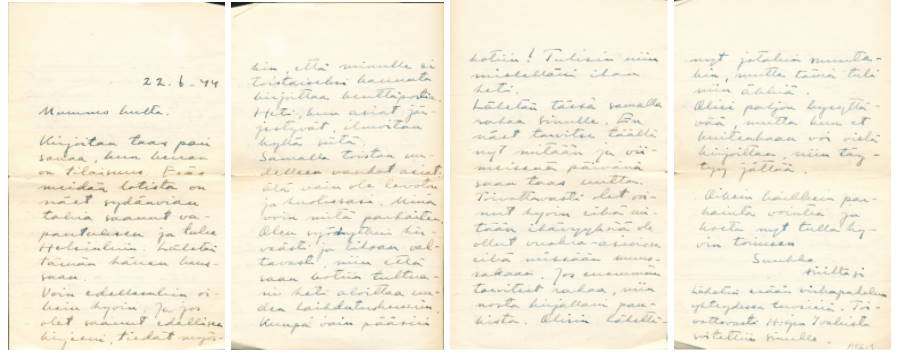 22.6-44
Mummus kulta.
Kirjoitan taas pari
sanaa, kun kerran
on tilaisuus. Eräs
meidän lotista on
näet sydänvian
takia saanut va-
pautuksen ja tulee
Helsinkiin. Lähetän
tämän hänen kans-
saan.
Voin edelleenkin oi-
kein hyvin. Ja jos
olet saanut edellisen
kirjeeni, tiedät myös-
kin, että minulle ei
toistaiseksi kannata
kirjoittaa kenttäpostia.
Heti, kun asiat jär-
jestyvät, ilmoitan
kyllä siitä.
Samalla toistan uu-
delleen vanhat asiat.
Älä vain ole levoton
ja huolissasi. Minä
voin mitä parhaiten.
Olen syönytkin hir-
veästi ja lihoan val-
tavasti, niin että
saan kotiin tultua-
ni heti aloittaa uu-
den laihdutuskuurin.
Kunpa vain pääsisin
kotiin! Tulisin niin
mielelläni ihan
heti.
Lähetän tässä samalla
rahaa sinulle. En
näet tarvitse täällä
nyt mitään ja vii-
meisenä päivänä
saan taas uutta.
Toivottavasti olet voi-
nut hyvin eikä mi-
tään ikävyyksiä ole
ollut vuokra-asioissa
eikä missään muus-
sakaan. Jos enemmän
tarvitset rahaa, niin
nosta kirjallani pan-
kista. Olisin lähettä-
nyt jotakin muuta-
kin, mutta tämä tuli
niin äkkiä.
Olisi paljon kysyttä-
vää, mutta kun et
kuitenkaan voi vielä
kirjoittaa, niin täy-
tyy jättää.
Oikein kaikkein par-
hainta vointia ja
koeta nyt tulla hy-
vin toimeen
Suukko
Lähetän erään
yhteydessä terveisiä. Toi-
vottavasti
soitettiin sinulle.